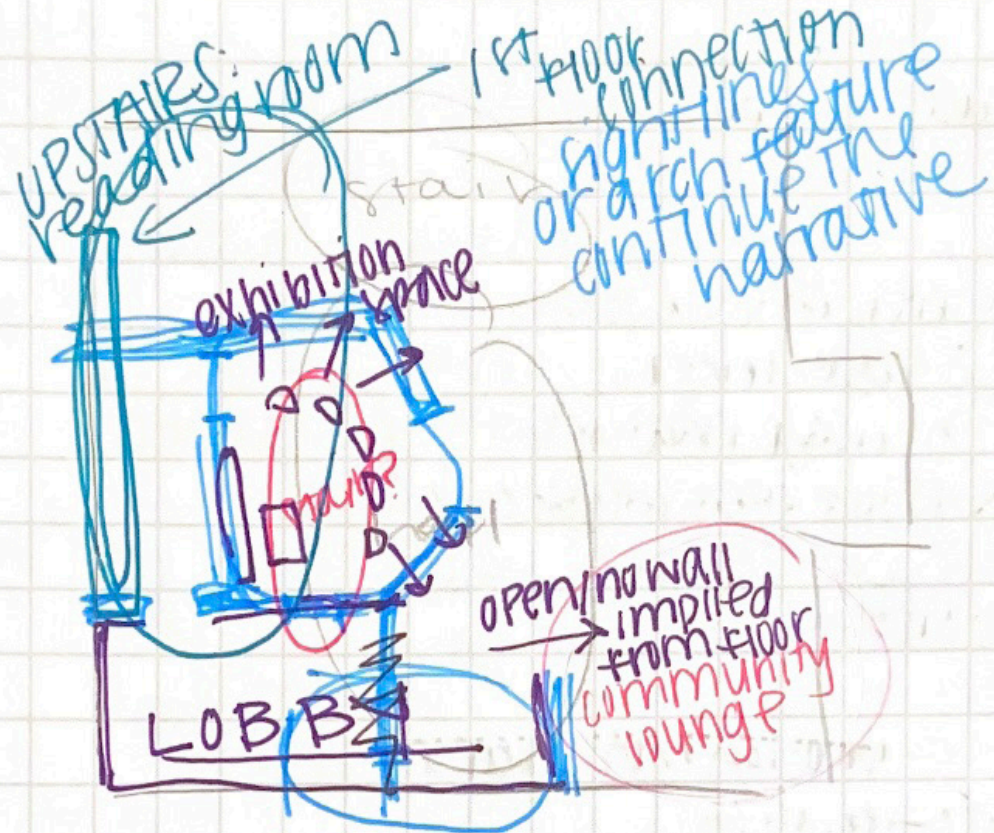 UPSTAIRS:
reading room
1st floor
connection
sightlines
or arch feature
continue the
narrative
stair
exhibition
space
open/no wall
implied
from floor
community
lounge
LOBBY